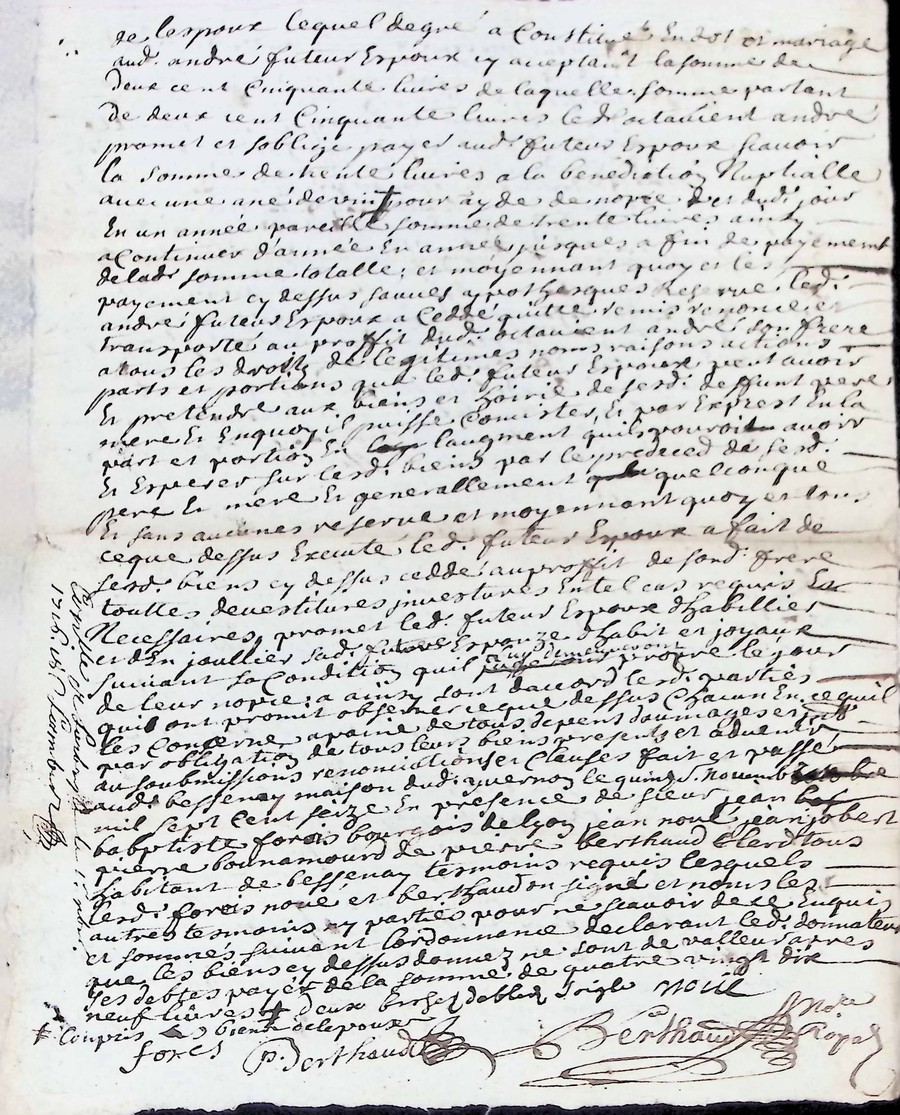 de lespoux lequel degré a Constitué En dot et mariage
aud. andré futeur Espoux cy acceptant la somme de
deux cent Cinquante livres de laquelle somme partant
de deux cent Cinquante livres led. octavient andré
promet et soblige payer aud. futeur Espoux scavoir
la somme de trente livres a la benediction Nuptialle
avec une ané de vin pour ayde de nopce & et dud. jour
En un année pareille somme de trente livres ainsy
a Continuer d'année En année jusques a fin de payement
de lad. somme totalle; et moyennant quoy et les
payement cy dessus sauves ypothesques Reservé led.
andré futeur Espoux a Cedde quitte remis renonce et
transporté au proffit dud. octavient andré son frere
a tous les droits de legitimes noms raisons actions
parts et portions que led. futeur Espoux peut avoir
Et pretendre aux biens et hoirie de sesd. deffunt pere
mere Et Enquoy il puisse Concister, Et par Exprest En la
part et portion En laugment quil pouroit avoir
Et Esperer sur lesd. biens par le predeced de sesd.
pere Et mere Et generallement quelconque
Et sans aucunes reserve et moyennant quoy et tous
ceque dessus Executé led. futeur Espoux a fait de
sesd. biens cy dessus ceddé au proffit de sond. frere
touttes devestitures investures En tel cas requis Et
Necessaires, promet led. futeur Espoux d'habillier
et d'En joullier sad. future Espouze d'habit et joyaux
suivant sa Condition quil luy demeureront propre le jour
de leur nopce; a ainsy sont daccord lesd. parties
quil ont promit observer ceque dessus Chacun En ce quil
les Concerne a paine de tous depent doumages et
par obligation de tous leurs biens presents et advenir
au soubmissions renonciations et Clauses fait et passé
aud. bessenay maison dud. quernon le quinze Novembre
mil sept cent seize En presence de sieur jean
baptiste forois bourgois de Lyon jean nové jean jobert
pierre bonnamourd de pierre berthaud Clerd tous
habitant de bessenay tesmoins requis lesquels
lesd. forois nové et berthaud on signé et nom les
autres tesmoins ny parties pour ne scavoir de ce Enquis
et sommés suivant Lordonnance declarant led. donnateur
que les biens cy dessus donnez ne sont de valleur apres
ses debtes payés de la somme de quatre vingt dix
neuf livres & deux bichet de bled seigle noüé
Compris les biens de lepoux
forest P. Berthaud Berthaud Nore Royal
1716